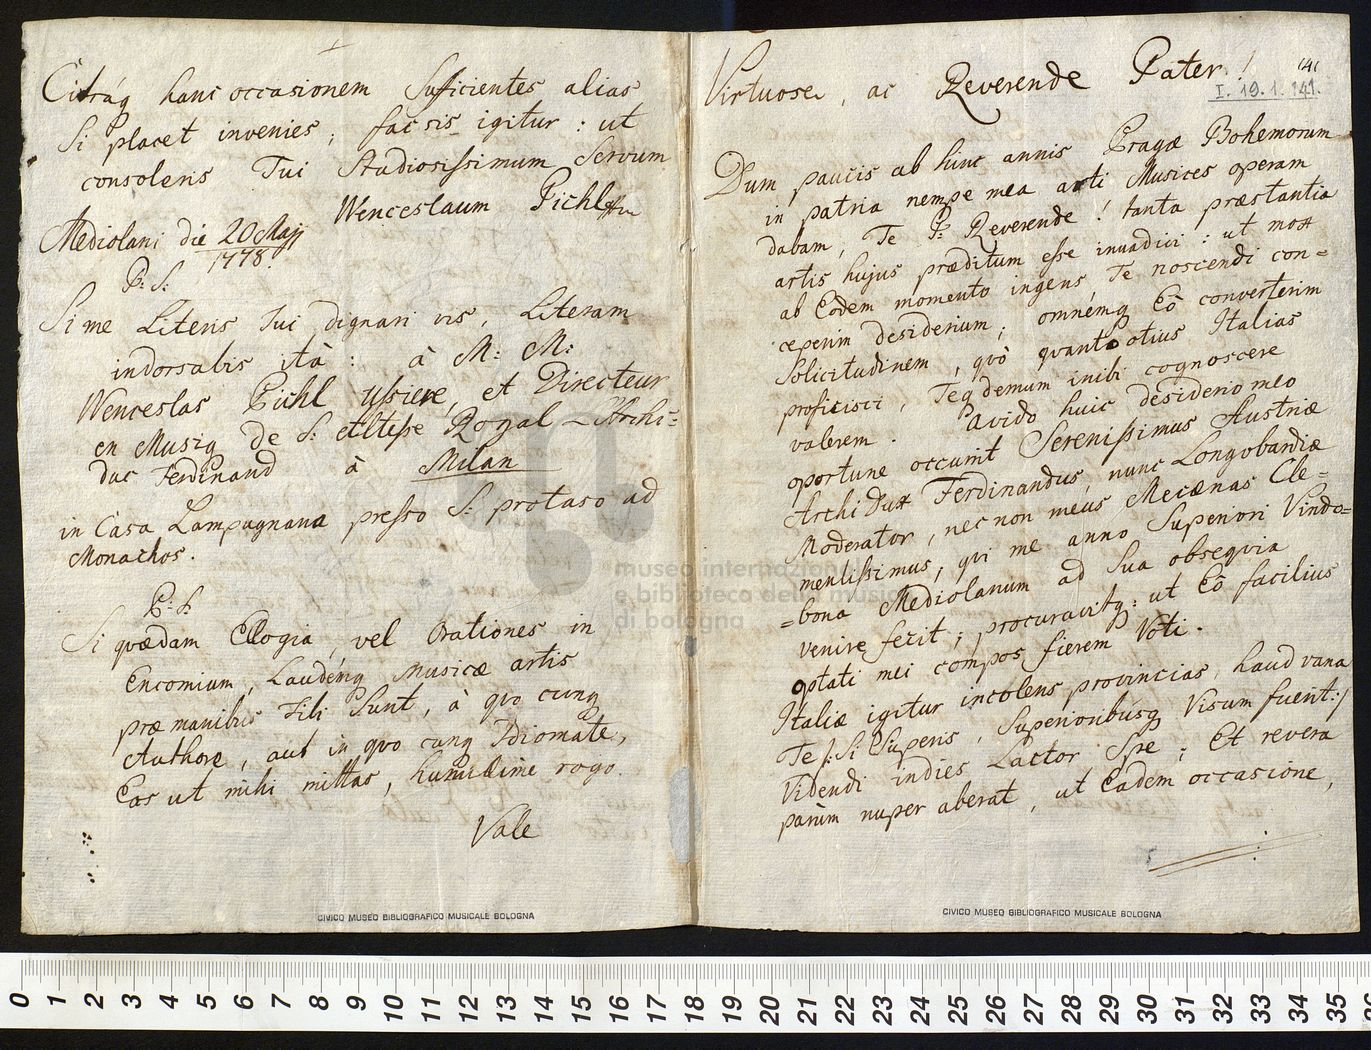 Citráq hanc occasionem Sufficientes alias
Si placet invenies, fac sis igitur : ut
consoleris Tui Studiosissimum Servum
Wenceslaum Pichl
Mediolani die 20 Maji
1778.
P: S:
Si me Literis Tui dignari vis, Literam
indorsabis ità : à M: M:
Wenceslas Pichl
et Directeur
en Musiq de S: Altesse Royal L'Archi=
duc Ferdinand à Milan
in Casa Lampugnana presso S: protaso ad
Monachos.
P: S
Si quædam Ellogia, vel Orationes in
Encomium, Laudémq Musicæ artis
præ manibus Tibi Sunt, à quo cunq
Authore, aut in quo cunq Idiomate,
Eas ut mihi mittas, humillime rogo.
Vale
CIVICO MUSEO BIBLIOGRAFICO MUSICALE BOLOGNA
Virtuose, ac Reverende Pater !
141
I. 19. 1. 141.
Dum paucis ab hinc annis Pragæ Bohemorum
in patria nempe mea arti Musices operam
dabam, Te P: Reverende ! tanta præstantia
artis hujus præditum esse inaudivi : ut mox
ab Eodem momento ingens, Te noscendi con=
ceperim desiderium ; omnémq Eò converterim
Solicitudinem, quò quanto otius Italias
proficisci, Teq demum inibi cognoscere
valerem. Pavido huic desiderio meo
oportune occurrit Serenissimus Austriæ
Archi Dux Ferdinandus, nunc Longobardiæ
Moderator, nec non meus Mecænas Cle=
mentissimus, qui me anno Superiori Vindo=
=bona Mediolanum ad Sua obsequia
venire fecit ; procuravitq : ut Eò facilius
optati mei compos fierem Voti.
Italiæ igitur incolens provincias, haud vana
Te /: Si Superis, Superioribúsq Visum fuerit :/
Videndi indies Lactor Spe ; Et revera
parùm nuper aberat, ut Eadem occasione,
CIVICO MUSEO BIBLIOGRAFICO MUSICALE BOLOGNA
museo internazionale
e biblioteca della musica
di bologna
0 1 2 3 4 5 6 7 8 9 10 11 12 13 14 15 16 17 18 19 20 21 22 23 24 25 26 27 28 29 30 31 32 33 34 35 36